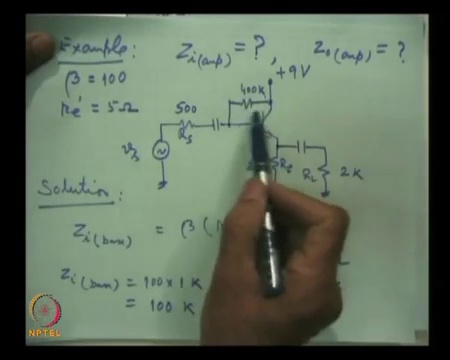 Example: Zi(amp) = ? , Zo(amp) = ?
β = 100
re' = 5Ω
+9V
400K
500
Rs
vs
RE
RL 2K
Solution
Zi(base) = β (
Zi(base) = 100 x 1 K
= 100 K
NPTEL